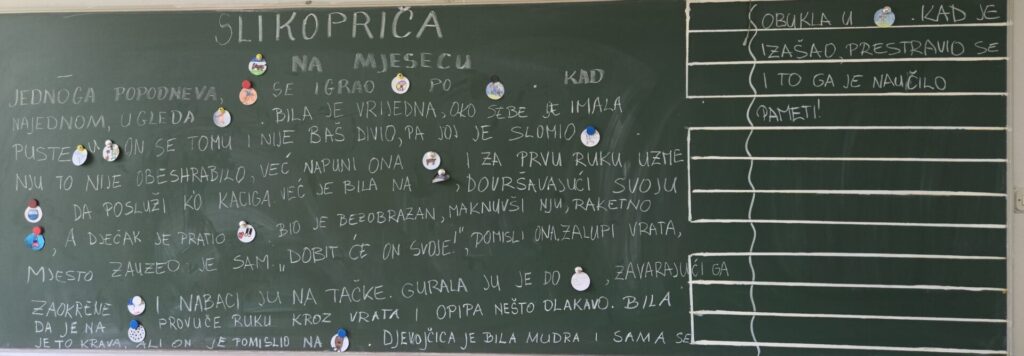 SLIKOPRIČA
NA MJESECU
JEDNOGA POPODNEVA, SE IGRAO PO . KAD
NAJEDNOM, UGLEDA . BILA JE VRIJEDNA, OKO SEBE JE IMALA
PUSTE . ON SE TOMU I NIJE BAŠ DIVIO, PA JOJ JE SLOMIO
NJU TO NIJE OBESHRABILO, VEĆ NAPUNI ONA I ZA PRVU RUKU UZME
DA POSLUŽI KO KACIGA. VEĆ JE BILA NA , DOVRŠAVAJUĆI SVOJU
, A DJEČAK JE PRATIO . BIO JE BEZOBRAZAN, MAKNUVŠI NJU, RAKETNO
MJESTO ZAUZEO JE SAM. „DOBIT ĆE ON SVOJE!", POMISLI ONA, ZALUPI VRATA,
ZAOKRENE I NABACI JU NA TAČKE. GURALA JU JE DO , ZAVARAJUĆI GA
DA JE NA . PROVUČE RUKU KROZ VRATA I OPIPA NEŠTO DLAKAVO. BILA
JE TO KRAVA, ALI ON JE POMISLIO NA . DJEVOJČICA JE BILA MUDRA I SAMA SE
OBUKLA U . KAD JE
IZAŠAO, PRESTRAVIO SE
I TO GA JE NAUČILO
PAMETI!